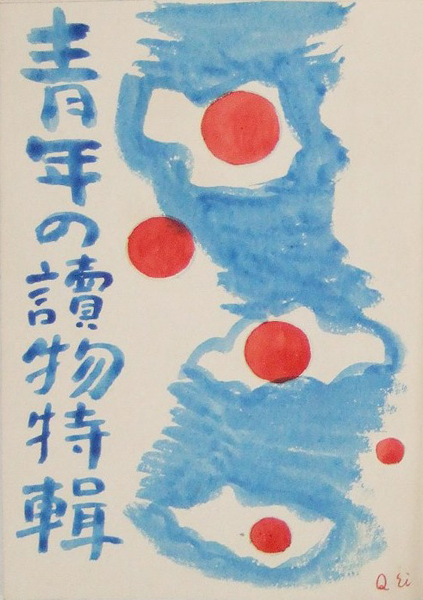 青年の讀物特輯
Q Ei